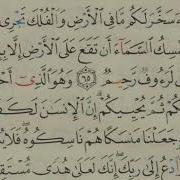 سَخَّرَ لَكُم مَّا فِى ٱلْأَرْضِ وَٱلْفُلْكَ تَجْرِى
ٱلسَّمَآءَ أَن تَقَعَ عَلَى ٱلْأَرْضِ إِلَّا
لَرَءُوفٌ رَّحِيمٌ ٦٥ وَهُوَ ٱلَّذِىٓ
ثُمَّ يُحْيِيكُمْ إِنَّ ٱلْإِنسَٰنَ
جَعَلْنَا مَنسَكًا هُمْ نَاسِكُوهُ فَلَا
إِلَىٰ رَبِّكَ إِنَّكَ لَعَلَىٰ هُدًى